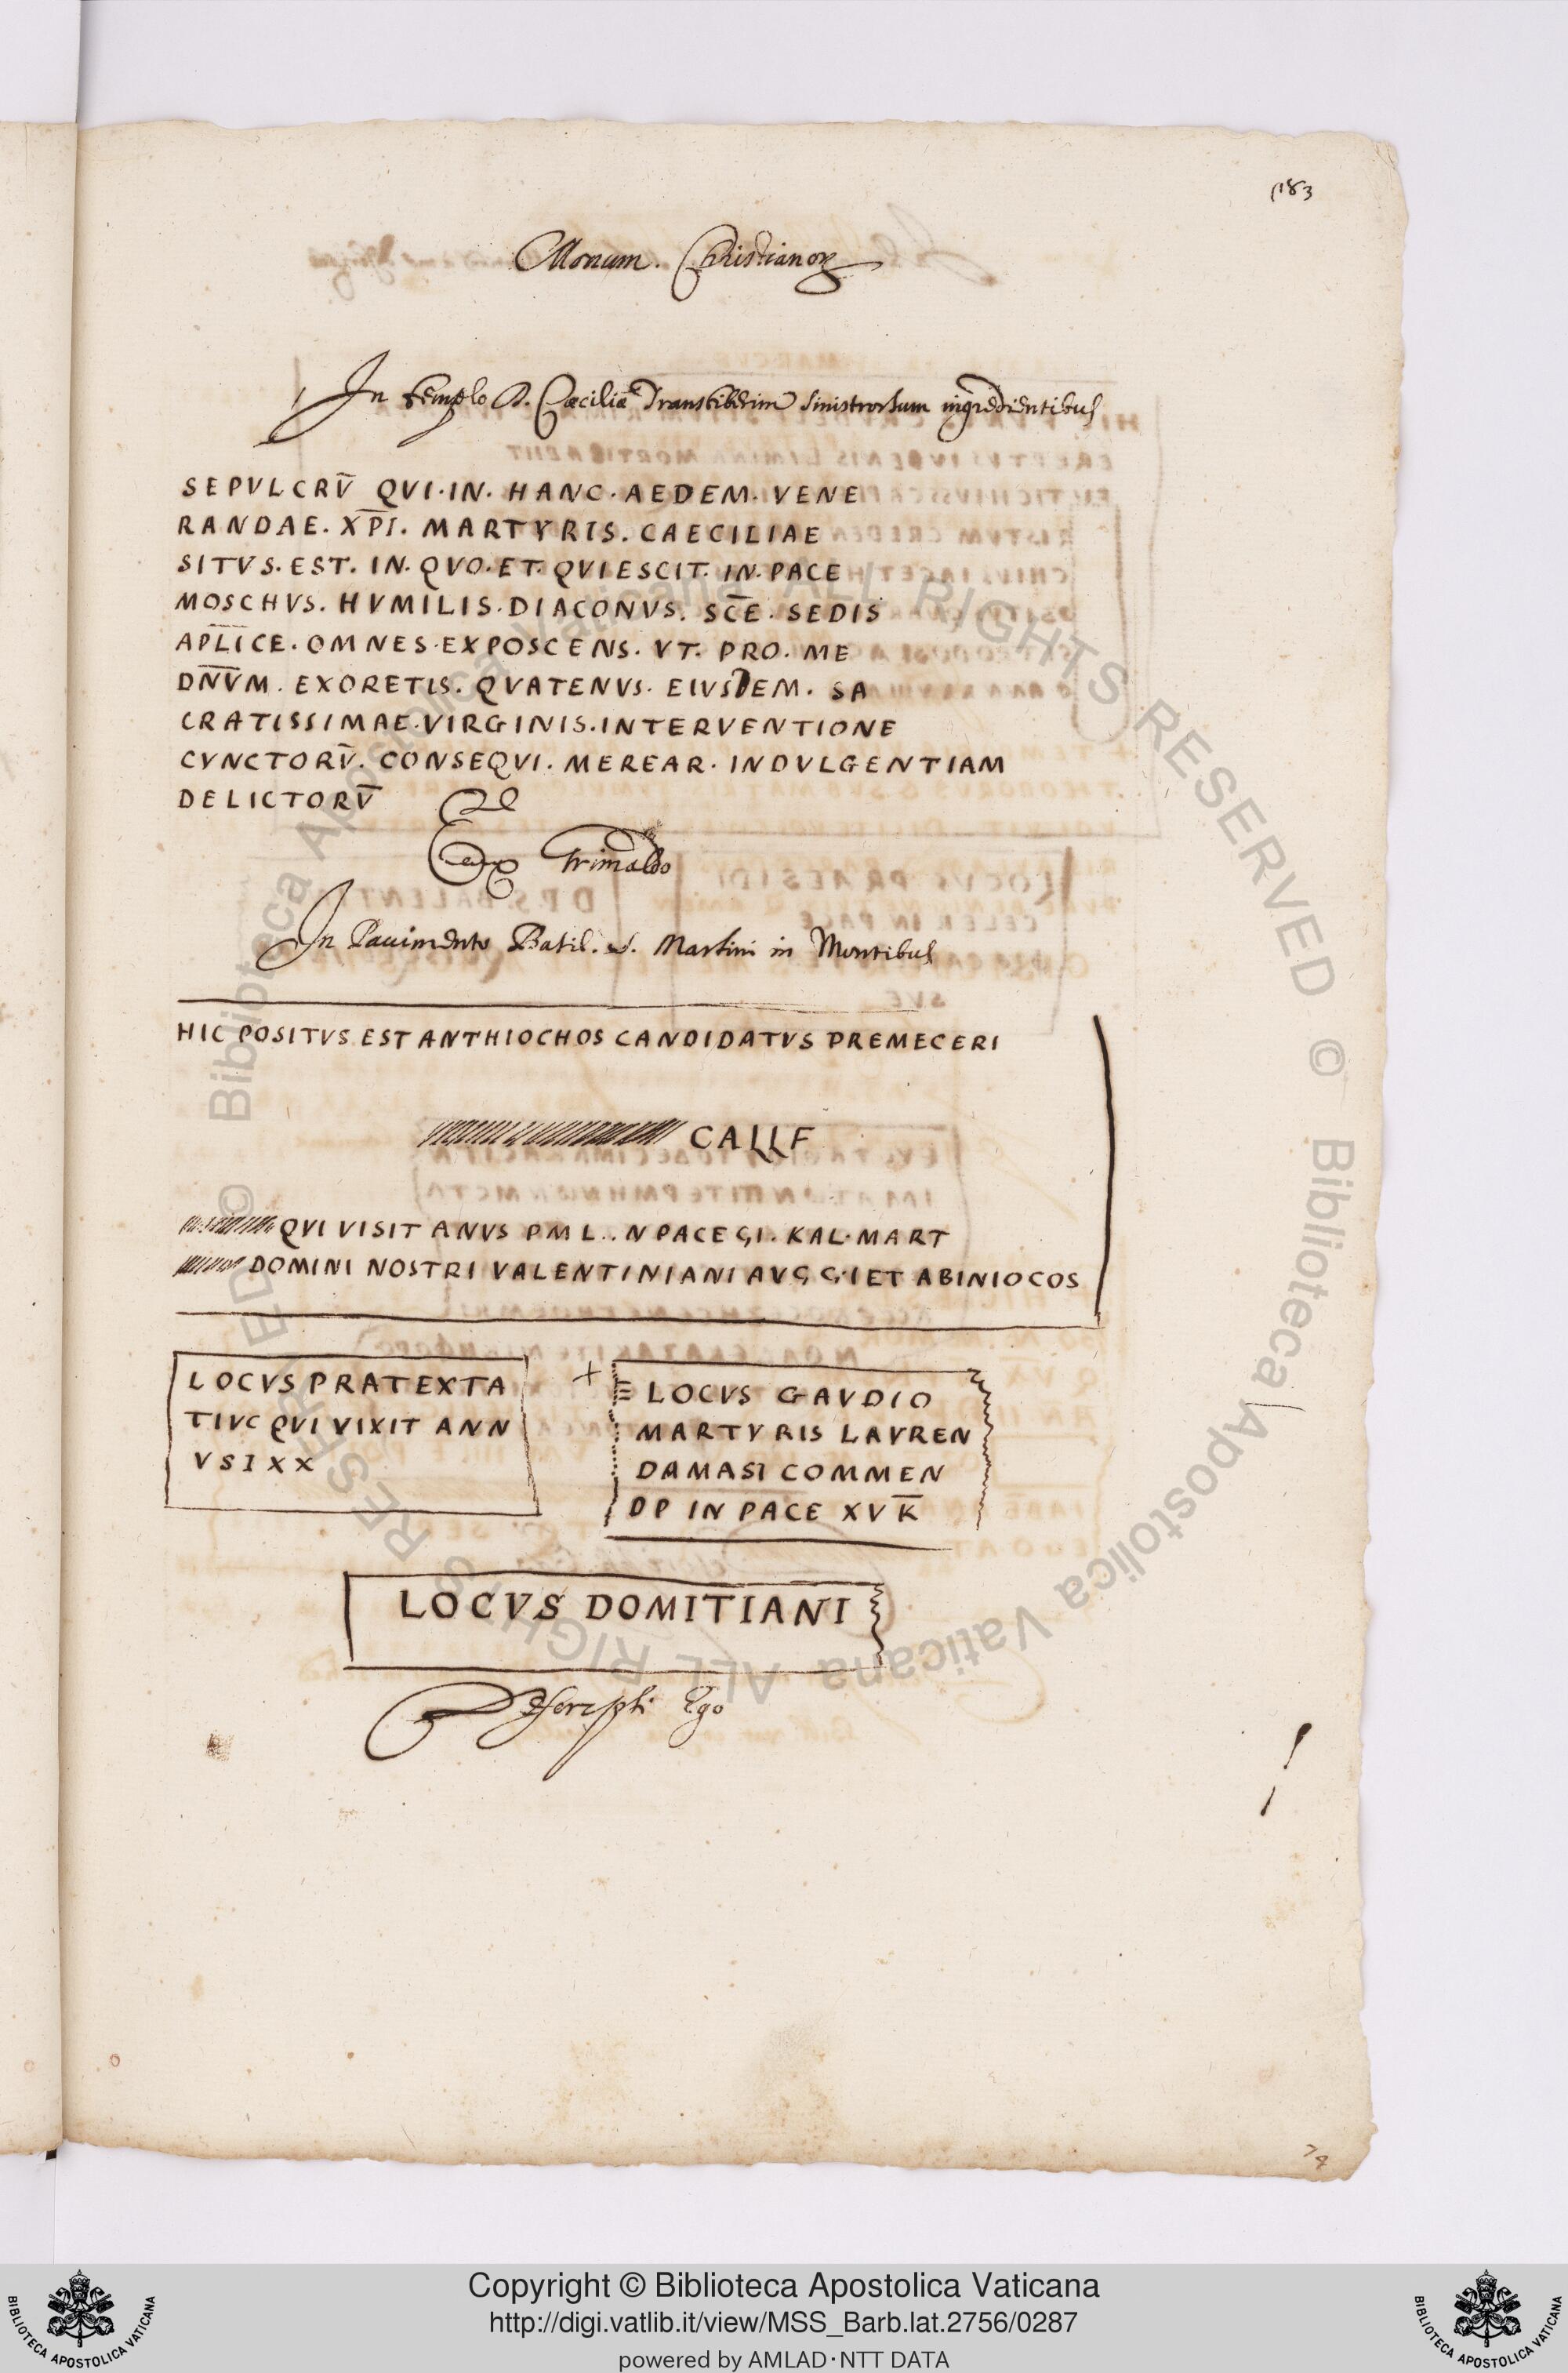 183
Monum. Christianoꝝ
In templo S. Cæciliæ Transtiberim sinistrorsum ingredientibus
SEPVLCRV̄ QVI·IN·HANC·AEDEM·VENE
RANDAE·XP̄I·MARTYRIS·CAECILIAE
SITVS·EST·IN·QVO·ET·QVIESCIT·IN·PACE
MOSCHVS·HVMILIS·DIACONVS·SC̄E·SEDIS
APL̄ICE·OMNES·EXPOSCENS·VT·PRO·ME
DN̄V̄M·EXORETIS·QVATENVS·EIVSDEM·SA
CRATISSIMAE·VIRGINIS·INTERVENTIONE
CVNCTORV̄·CONSEQVI·MEREAR·INDVLGENTIAM
DELICTORV̄
Ex Grimaldo
In Pauimento Basil. S. Martini in Montibus
HIC POSITVS EST ANTHIOCHOS CANDIDATVS PREMECERI
CALLF
QVI VISIT ANVS PM L..N PACE GI·KAL·MART
DOMINI NOSTRI VALENTINIANI AVGG·IET ABINIOCOS
LOCVS PRATEXTA
TIVC QVI VIXIT ANN
VSIXX
+ LOCVS GAVDIO
MARTVRIS LAVREN
DAMASI COMMEN
DP IN PACE XVK̄
LOCVS DOMITIANI
Descripsi Ego
74
Copyright © Biblioteca Apostolica Vaticana
http://digi.vatlib.it/view/MSS_Barb.lat.2756/0287
powered by AMLAD·NTT DATA
BIBLIOTECA APOSTOLICA VATICANA
BIBLIOTECA APOSTOLICA VATICANA
© Biblioteca Apostolica Vaticana ALL RIGHTS RESERVED © Biblioteca Apostolica Vaticana ALL RIGHTS RESERVED